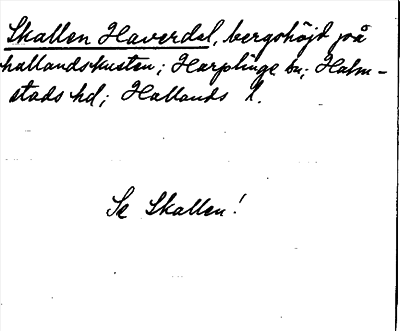 Skallen Haverdal, bergshöjd på
hallandskusten; Harplinge sn; Halm-
stads hd; Hallands l.
Se Skallen!